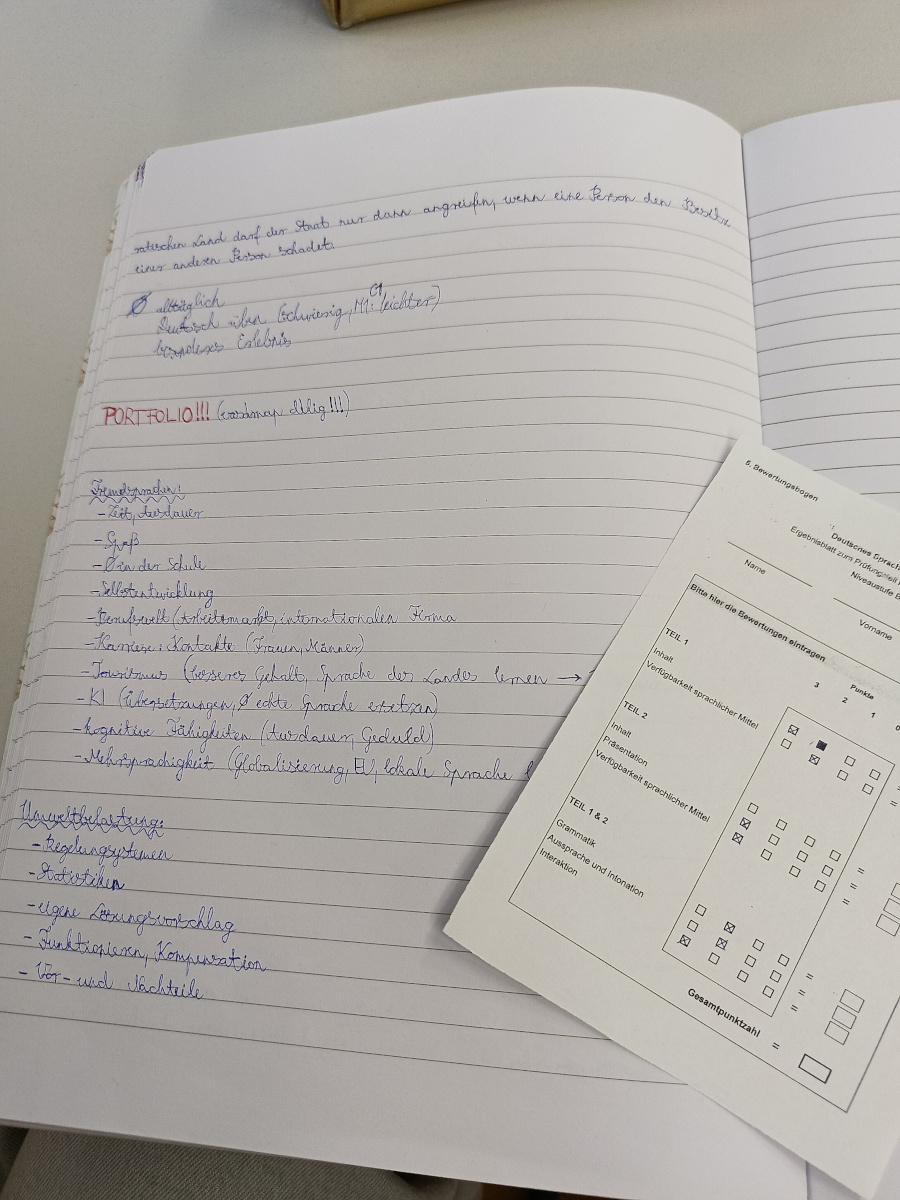 ratischen Land darf der Staat nur dann angreifen, wenn eine Person den Besitz
einer anderen Person schadet.
Ø alltäglich
Deutsch üben (schwierig, M1: C1 leichter)
besonderes Erlebnis
PORTFOLIO!!!
Fremdsprachen:
- Zeit, Ausdauer
- Spaß
- Ø in der Schule
- Selbstentwicklung
- Berufswelt (Arbeitsmarkt, internationalen Firma
- Karriere: Kontakte (Frauen, Männer)
- Tourismus (besserer Gehalt, Sprache des Landes lernen →
- KI (Übersetzungen, Ø echte Sprache ersetzen)
- kognitive Fähigkeiten (Ausdauer, Geduld)
- Mehrsprachigkeit (Globalisierung, EU, lokale Sprache
Umweltbelastung:
- Regelungsystemen
- Statistiken
- eigene Lösungsvorschlag
- Funktionieren, Kompensation
- Vor- und Nachteile
5. Bewertungsbogen
Deutsches Sprach
Ergebnisblatt zum Prüfungsteil
Niveaustufe B
Name
Vorname
Bitte hier die Bewertungen eintragen
Punkte
3 2 1 0
TEIL 1
Inhalt
Verfügbarkeit sprachlicher Mittel
TEIL 2
Inhalt
Präsentation
Verfügbarkeit sprachlicher Mittel
TEIL 1 & 2
Grammatik
Aussprache und Intonation
Interaktion
Gesamtpunktzahl =